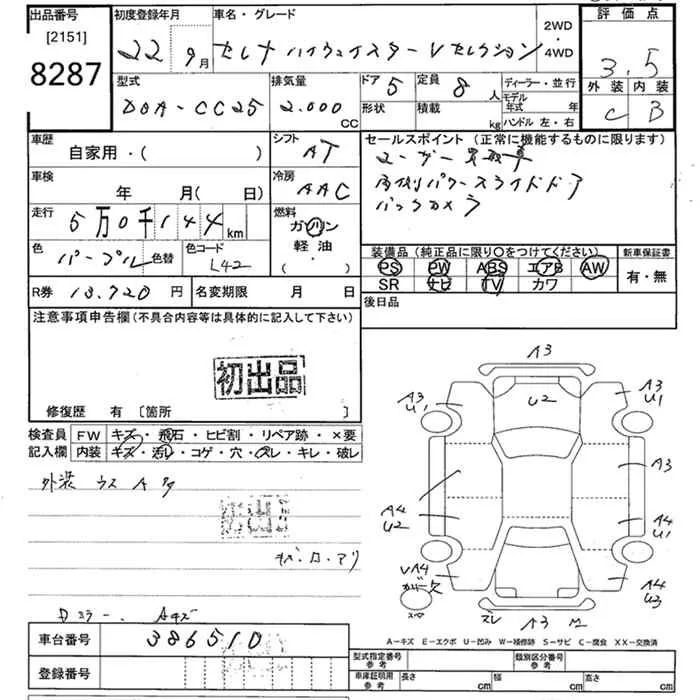 出品番号 [2151] 8287
初度登録年月 22 9月
車名・グレード セレナ ハイウェイスター Vセレクション
2WD・4WD
評価点 3.5
外装 C 内装 B
型式 DBA-CC25
排気量 2.000 CC
ドア 5 形状
定員 8人 積載 kg
ディーラー・並行
モデル年式 年
ハンドル 左・右
車歴 自家用・( )
シフト AT
セールスポイント (正常に機能するものに限ります)
ユーザー買取車
両側パワースライドドア
バックカメラ
車検 年 月( 日)
冷房 AAC
走行 5万0千144km
燃料 ガソリン 軽油・( ・ )
色 パープル 色替
色コード L42
装備品(純正品に限り○をつけてください)
PS PW ABS エアB AW
SR ナビ TV カワ
新車保証書 有・無
R券 13.720円
名変期限 月 日
後日品
注意事項申告欄(不具合内容等は具体的に記入して下さい)
初出品
修復歴 有 [箇所 ]
検査員記入欄
FW キズ・飛石・ヒビ割・リペア跡・×要
内装 キズ・汚レ・コゲ・穴・スレ・キレ・破レ
外装 ウス A 多
初出品
Dミラー Aキズ
車台番号 386510
登録番号
A3
A3 U1
U2
A3 U1
A3
A4 U2
A4 U1
VA4
A4 U3
スペ
ズレ
A3
A-キズ E-エクボ U-凹み W-補修跡 S-サビ C-腐食 XX-交換済
型式指定番号 参考
類別区分番号 参考
車庫証明用 参考
長さ cm 幅 cm 高さ cm